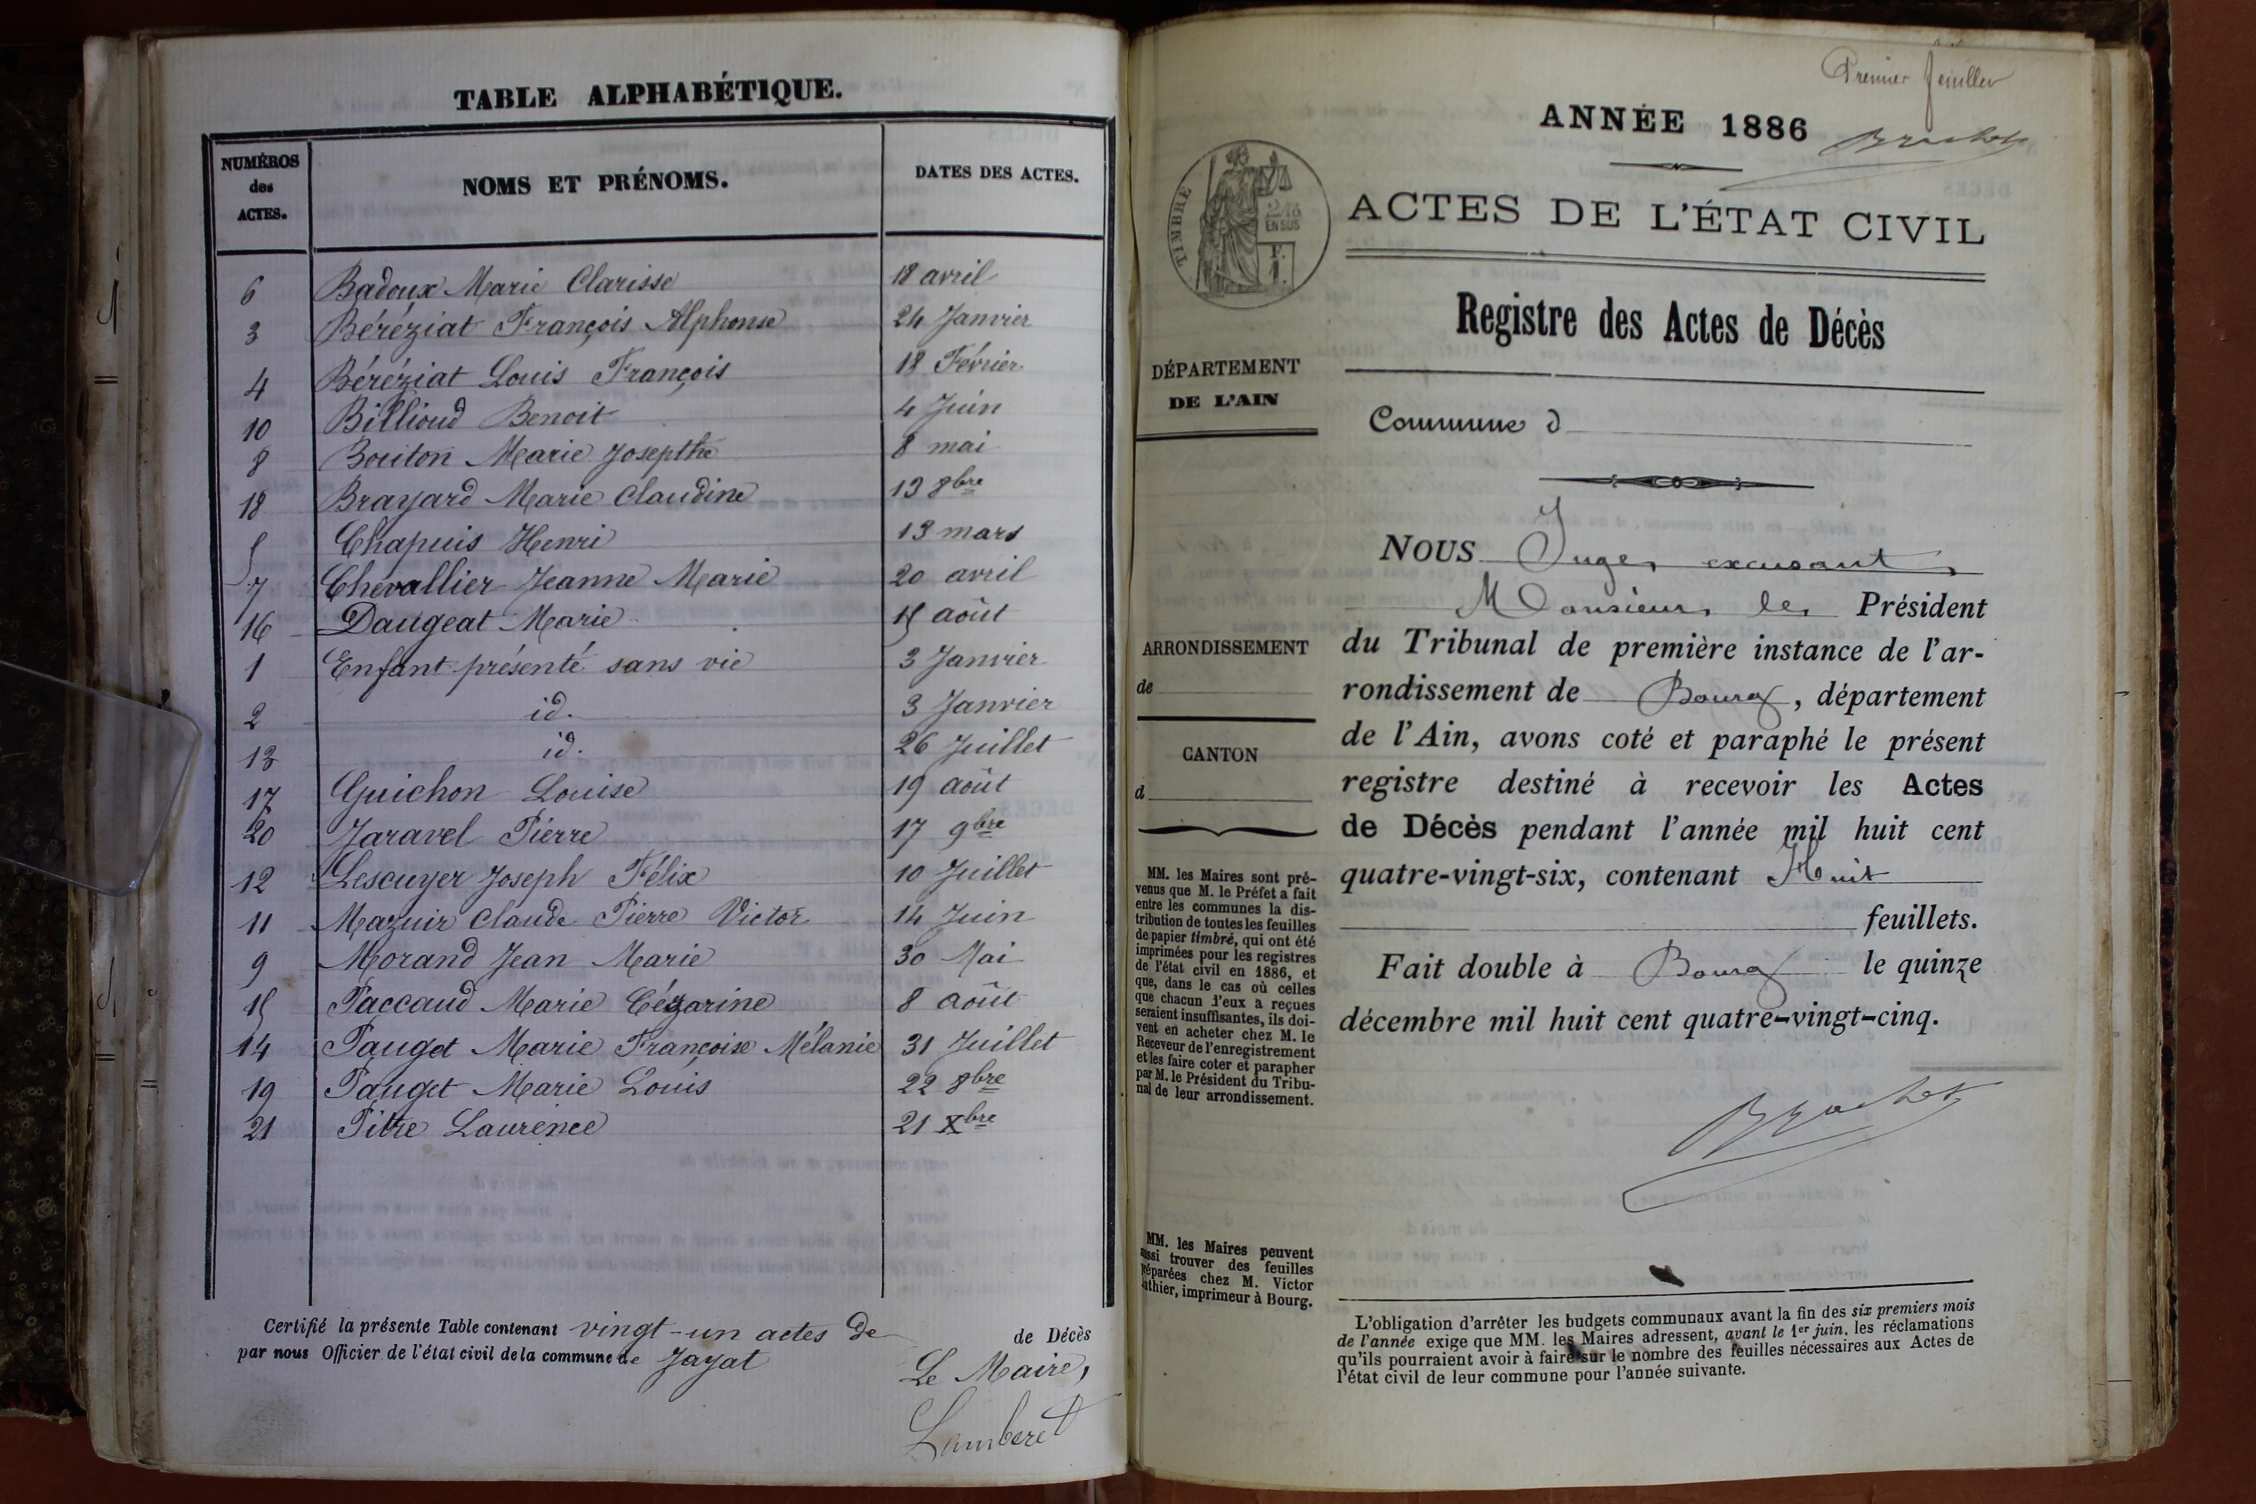 TABLE ALPHABÉTIQUE.
NUMÉROS des ACTES. NOMS ET PRÉNOMS. DATES DES ACTES.
6 Badoux Marie Clarisse 18 avril
3 Béréziat François Alphonse 24 Janvier
4 Béréziat Louis François 18 Février
10 Billioud Benoit 4 Juin
8 Bouiton Marie Josepthe 8 mai
18 Brayard Marie Claudine 13 8bre
5 Chapuis Henri 13 mars
7 Chevallier Jeanne Marie 20 avril
16 Daugeat Marie 15 août
1 Enfant présenté sans vie 3 Janvier
2 id. 3 Janvier
13 id. 26 Juillet
17 Guichon Louise 19 août
20 Jaravel Pierre 17 9bre
12 Lescuyer Joseph Félix 10 Juillet
11 Mazuir Claude Pierre Victor 14 Juin
9 Morand Jean Marie 30 Mai
15 Paccaud Marie Cézarine 8 août
14 Pauget Marie Françoise Mélanie 31 Juillet
19 Pauget Marie Louis 22 8bre
21 Pitre Laurence 21 Xbre
Certifié la présente Table contenant vingt-un actes de de Décès
par nous Officier de l'état civil de la commune de Jayat
Le Maire,
Lamberet
Premier feuillet
ANNÉE 1886
Brochet
ACTES DE L'ÉTAT CIVIL
TIMBRE
EN SUS
Registre des Actes de Décès
DÉPARTEMENT
DE L'AIN
Commune d
NOUS Juge, excusant
Monsieur le Président
du Tribunal de première instance de l'ar-
rondissement de Bourg, département
de l'Ain, avons coté et paraphé le présent
registre destiné à recevoir les Actes
de Décès pendant l'année mil huit cent
quatre-vingt-six, contenant Huit
feuillets.
Fait double à Bourg le quinze
décembre mil huit cent quatre-vingt-cinq.
Brochet
ARRONDISSEMENT
de
CANTON
d
MM. les Maires sont pré-
venus que M. le Préfet a fait
entre les communes la dis-
tribution de toutes les feuilles
de papier timbré, qui ont été
imprimées pour les registres
de l'état civil en 1886, et
que, dans le cas où celles
que chacun d'eux a reçues
seraient insuffisantes, ils doi-
vent en acheter chez M. le
Receveur de l'enregistrement
et les faire coter et parapher
par M. le Président du Tribu-
nal de leur arrondissement.
MM. les Maires peuvent
aussi trouver des feuilles
préparées chez M. Victor
authier, imprimeur à Bourg.
L'obligation d'arrêter les budgets communaux avant la fin des six premiers mois
de l'année exige que MM. les Maires adressent, avant le 1er juin, les réclamations
qu'ils pourraient avoir à faire sur le nombre des feuilles nécessaires aux Actes de
l'état civil de leur commune pour l'année suivante.